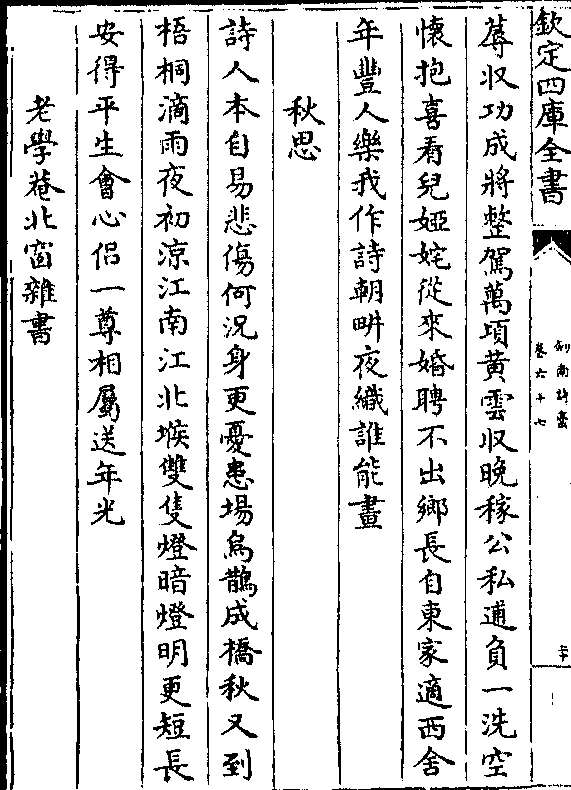 欽定四庫全書
劍南詩藁
卷六十七
蓐收功成將整駕萬頃黃雲收晚稼公私逋負一洗空
懷抱喜看兒婭姹從來婚聘不出鄉長自東家適西舍
年豐人樂我作詩朝畊夜織誰能畫
秋思
詩人本自易悲傷何況身更憂患場烏鵲成橋秋又到
梧桐滴雨夜初涼江南江北堠雙隻燈暗燈明更短長
安得平生會心侣一尊相屬送年光
老學菴北窗雜書